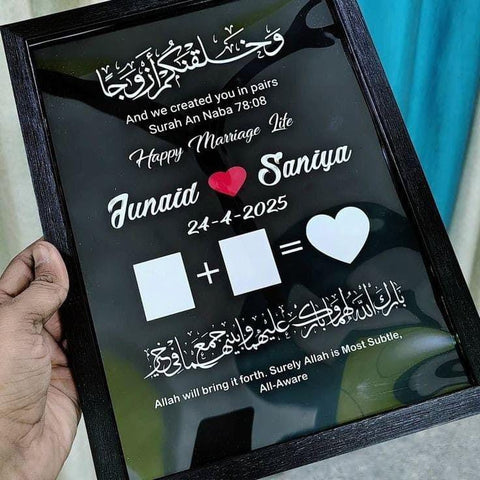 وَخَلَقْنَكُمْ أَزْوَجًا
And we created you in pairs
Surah An Naba 78:08
Happy Marriage Life
Junaid Saniya
24-4-2025
+ =
بَارَكَ اللَّهُ لَهُمَا وَبَارَكَ عَلَيْهِمَا وَ بَيْنَهُمَا فِي خَيْرٍ
Allah will bring it forth. Surely Allah is Most Subtle,
All-Aware